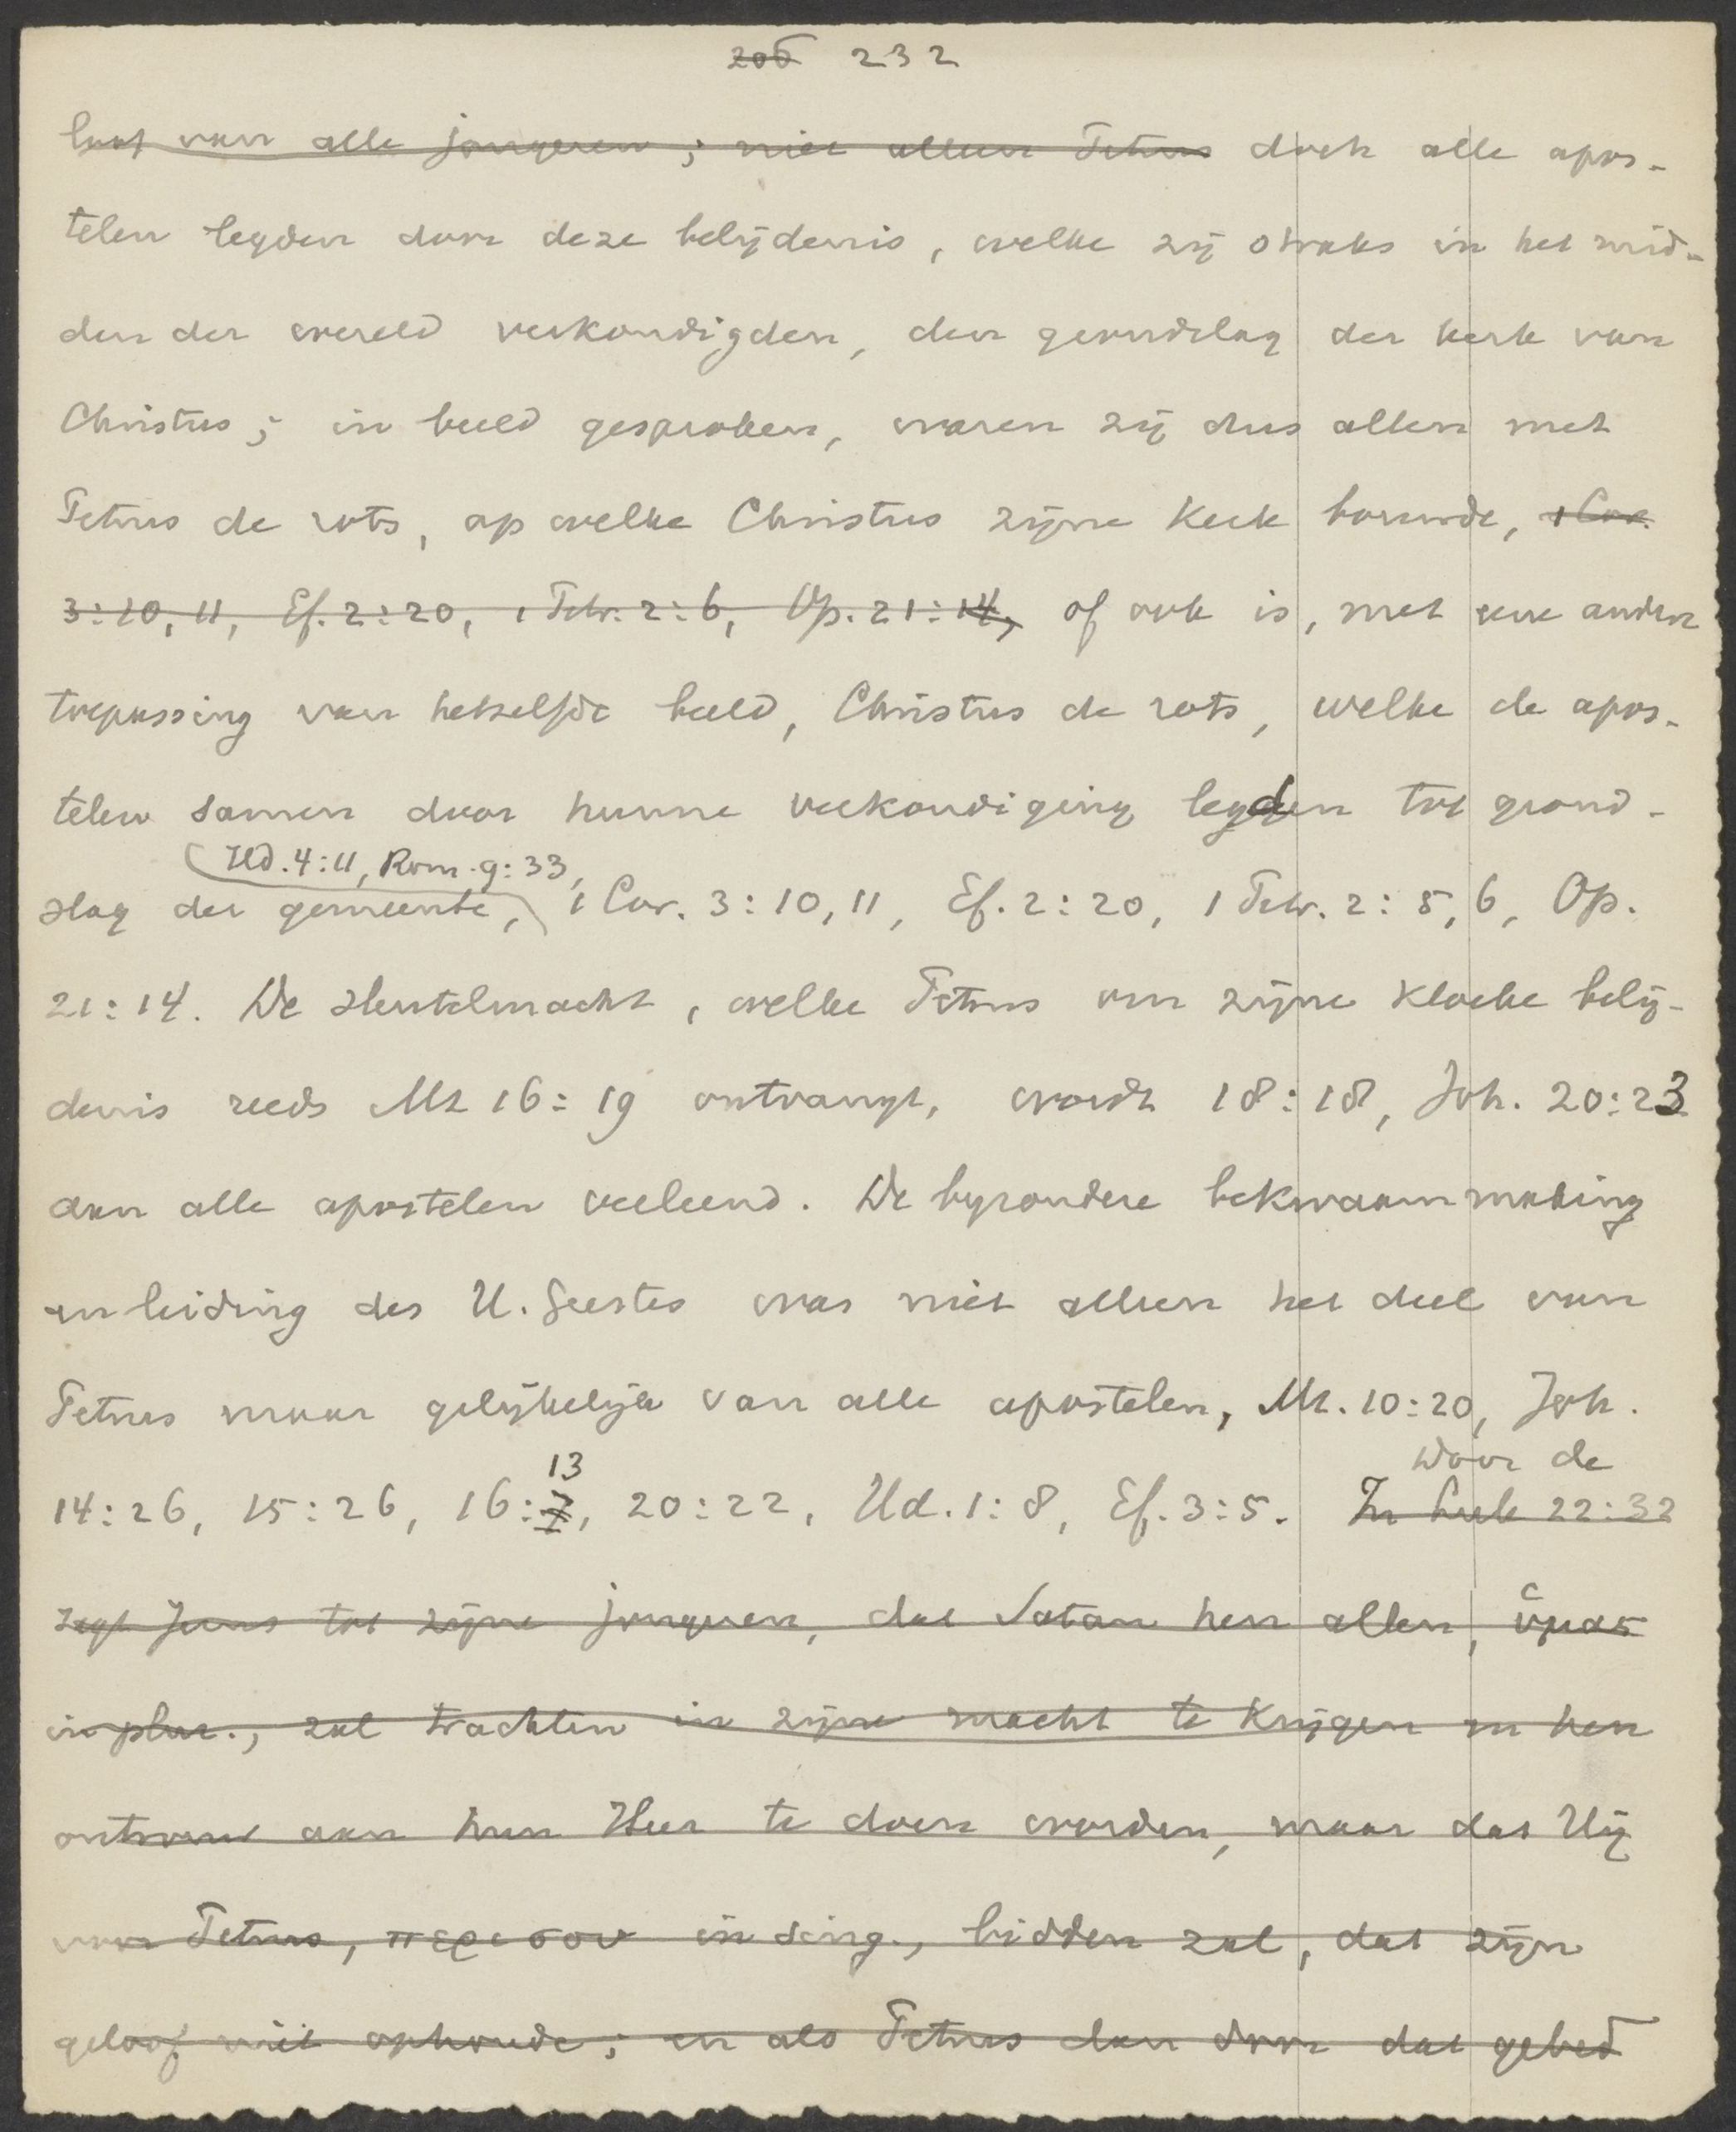 206 232
laat van alle jongeren; niet alleen Petrus doch alle apos-
telen legden door deze belijdenis, welke zij straks in het mid-
den der wereld verkondigden, den grondslag der kerk van
Christus; in beeld gesproken, waren zij dus allen met
Petrus de rots, op welke Christus zijne Kerk bouwde, 1 Cor.
3:10, 11, Ef. 2:20, 1 Petr. 2:6, Op. 21:14, of ook is, met eene andere
toepassing van hetzelfde beeld, Christus de rots, welke de apos-
telen samen door hunne verkondiging legden tot grond-
Hd. 4:11, Rom. 9:33,
slag der gemeente, 1 Cor. 3:10, 11, Ef. 2:20, 1 Petr. 2:5, 6, Op.
21:14. De sleutelmacht, welke Petrus om zijne kloeke belij-
denis reeds Mt 16:19 ontvangt, wordt 18:18, Joh. 20:23
aan alle apostelen verleend. De byzondere bekwaammaking
en leiding des H. Geestes was niet alleen het deel van
Petrus maar gelijkelijk van alle apostelen, Mt. 10:20, Joh.
13 Voor de
14:26, 15:26, 16:7, 20:22, Hd. 1:8, Ef. 3:5. In Luk 22:32
zegt Jezus tot zijne jongeren, dat Satan hen allen, ὑμας
in plur., zal trachten in zijne macht te krijgen en hen
ontrouw aan hun Heer te doen worden, maar dat Hij
voor Petrus, περι σου in sing., bidden zal, dat zijn
geloof niet ophoude; en als Petrus dan door dat gebed